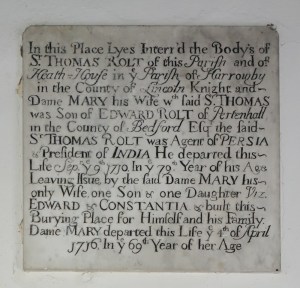 In this Place Lyes Interr'd the Body's of
Sr. THOMAS ROLT of this Parish and of
Heath-House in ye Parish of Harrowby
in the County of Lincoln Knight and
Dame MARY his Wife wch said Sr. THOMAS
was Son of EDWARD ROLT of Pertenhall
in the County of Bedford Esq. the said
Sr THOMAS ROLT was Agent of PERSIA
& President of INDIA He departed this
Life Sep. ye 9th. 1710. In ye 79th. Year of his Age
Leaving Issue, by the said Dame MARY his
only Wife, one Son & one Daughter Viz.
EDWARD & CONSTANTIA & built this
Burying Place for Himself and his Family.
Dame MARY departed this Life ye 4th of April
1716. In ye 69th Year of her Age